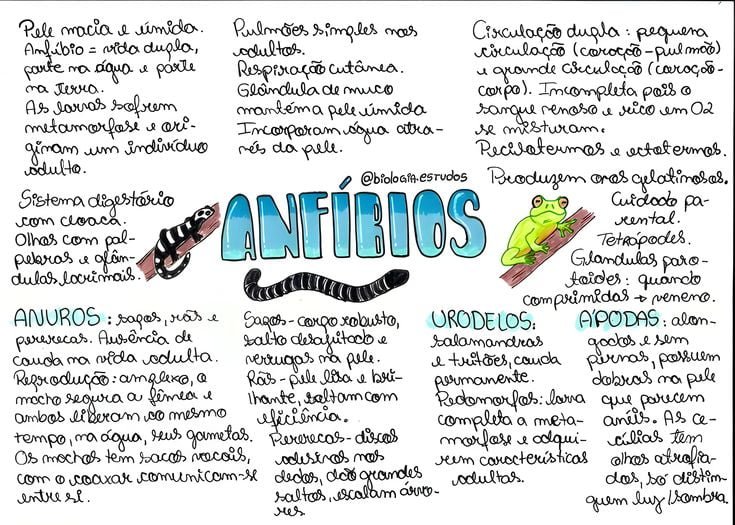 Pele macia e úmida.
Anfíbio = vida dupla,
parte na água e parte
na terra.
As larvas sofrem
metamorfose e ori-
ginam um indivíduo
adulto.
Pulmões simples nos
adultos.
Respiração cutânea.
Glândula de muco
mantém a pele úmida
Incorporam água atra-
vés da pele.
Circulação dupla : pequena
circulação (coração-pulmão)
e grande circulação (coração-
corpo). Incompleta pois o
sangue venoso e rico em O2
se misturam.
Pecilotermos e ectotermos.
Produzem ovos gelatinosos.
Cuidado pa-
rental.
Tetrápodes.
Glandulas paro-
toides : quando
comprimidas → veneno.
Sistema digestório
com cloaca.
Olhos com pál-
pebras e glân-
dulas lacrimais.
@biologia.estudos
ANFÍBIOS
ANUROS : sapos, rãs e
pererecas. Ausência de
cauda na vida adulta.
Reprodução : amplexo, o
macho segura a fêmea e
ambos liberam ao mesmo
tempo, na água, seus gametas.
Os machos tem sacos vocais,
com o coaxar comunicam-se
entre si.
Sapos - corpo robusto,
salto desajeitado e
verrugas na pele.
Rãs - pele lisa e bri-
lhante, saltam com
eficiência.
Pererecas - discos
adesivos nos
dedos, dão grandes
saltos, escalam árvo-
res
URODELOS:
salamandras
e tritões, cauda
permanente.
Pedomorfos : larva
completa a meta-
morfose e adqui-
rem características
adultas.
APODAS : alon-
gados e sem
pernas, possuem
dobras na pele
que parecem
anéis. As ce-
cílias tem
olhos atrofia-
dos, só distin-
guem luz/sombra.